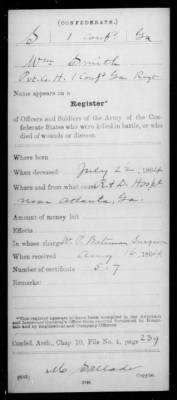 (CONFEDERATE.)
S | 1 Confed. | Ga
Wm Smith
Pvt. Co. H. 1 Conf't Ga. Regt
Name appears on a
Register*
of Officers and Soldiers of the Army of the Confederate States who were killed in battle, or who
died of wounds or disease.
Where born
When deceased July 22, 1864
Where and from what cause R & D. Hospl
near Atlanta, Ga.
Amount of money left
Effects
In whose charge P. Bateman Surgeon
When received Aug 16, 1864
Number of certificate 57
Remarks:
*This register appears to have been compiled in the Adjutant
and Inspector General's Office from records furnished by Hospitals
and by Regimental and Company Officers.
Confed. Arch., Chap. 10, File No. 4, page 239
Copyist.